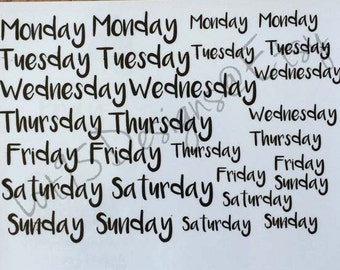 Monday Monday Monday Monday
Tuesday Tuesday Tuesday Tuesday
Wednesday Wednesday Wednesday
Thursday Thursday Wednesday
Friday Friday Thursday Thursday
Friday Friday
Saturday Saturday Saturday Sunday
Sunday Sunday Saturday Sunday